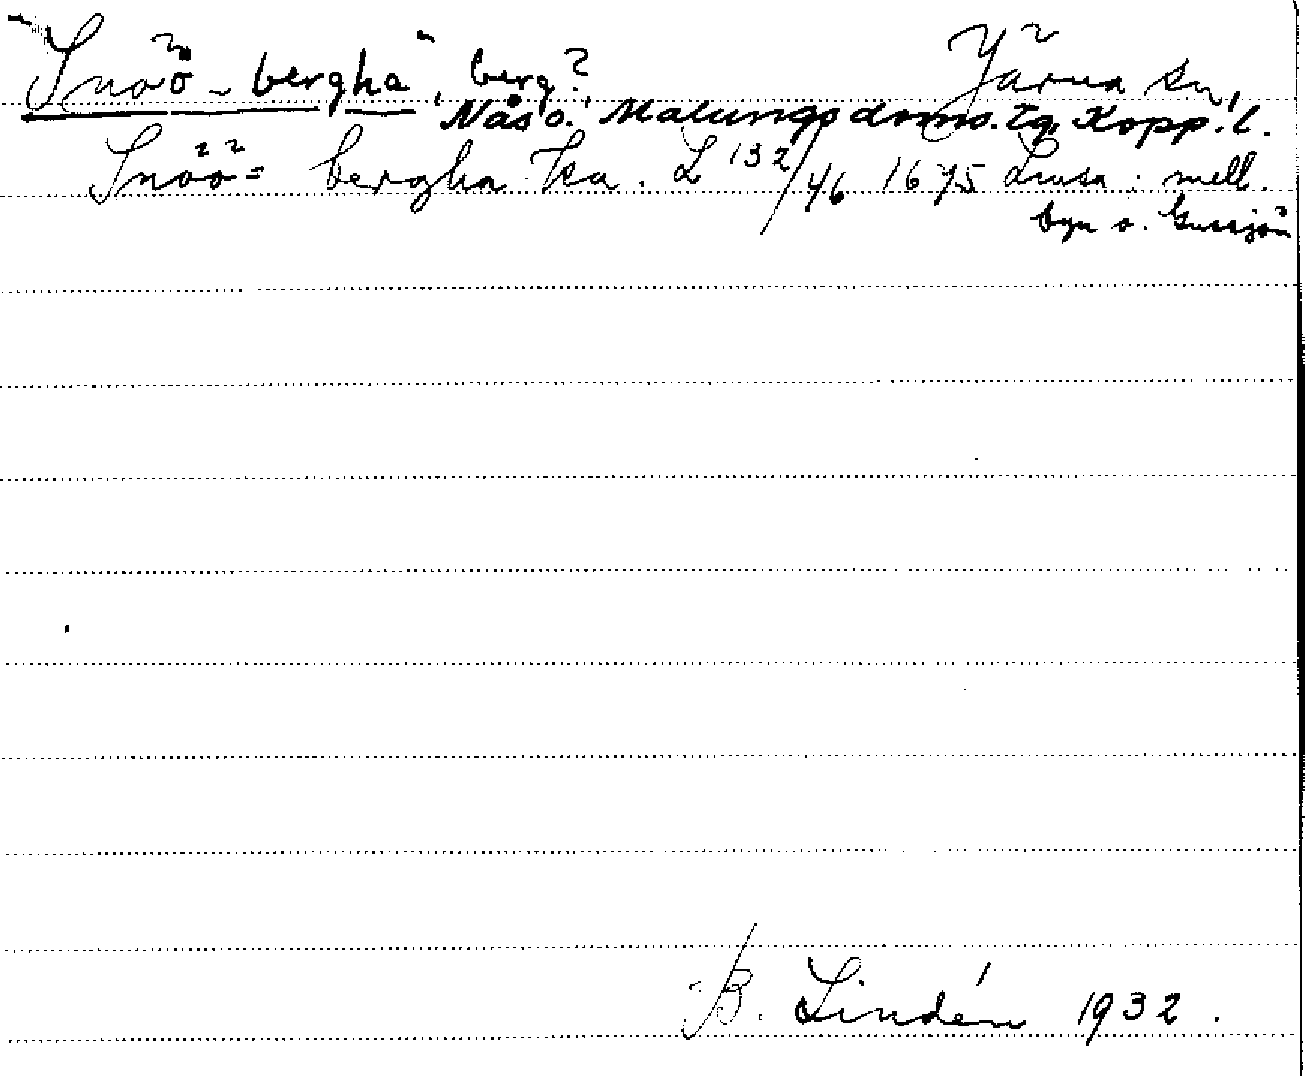 "Snöö-bergha", berg? Järna sn,
Nås o. Malungs doms. tg. Kopp. l.
Snöö= bergha Ka. L 132/46 1675 Limsa: mell.
byn o. Gussjön
B. Lindén 1932.